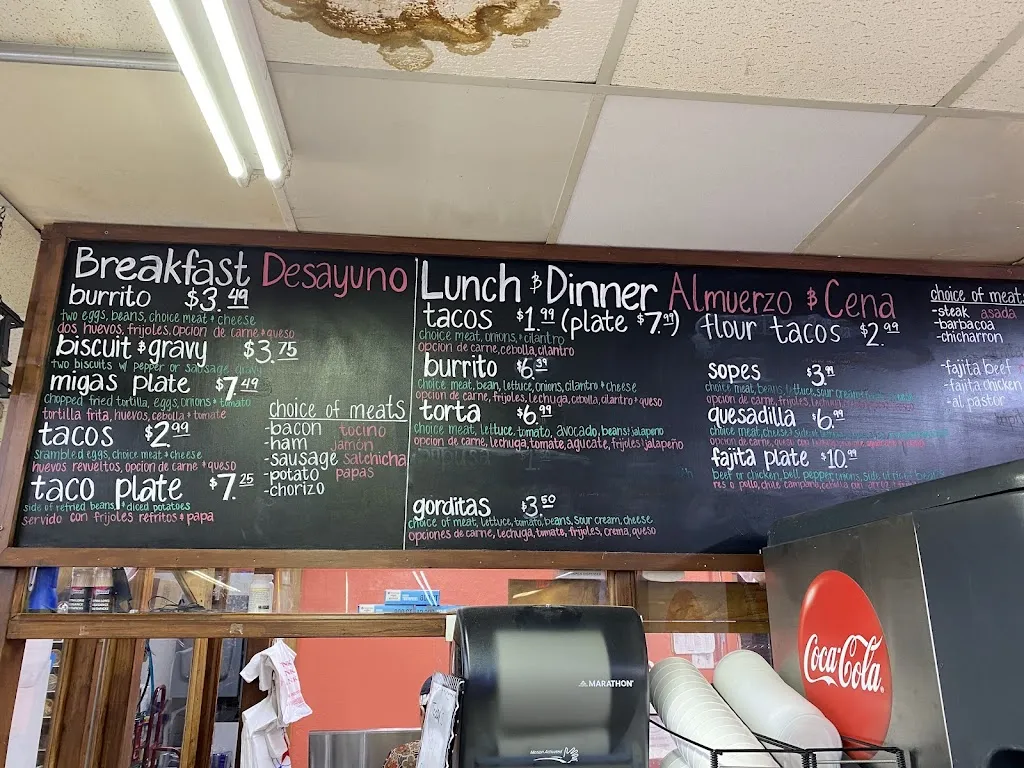 Breakfast Desayuno
burrito $3.49
two eggs, beans, choice meat + cheese
dos huevos, frijoles, opcion de carne + queso
biscuit & gravy $3.75
two biscuits w/ pepper or sausage gravy
migas plate $7.49
chopped fried tortilla, eggs, onions + tomato
tortilla frita, huevos, cebolla + tomate
tacos $2.99
srambled eggs, choice meat + cheese
huevos revueltos, opcion de carne + queso
taco plate $7.25
side of refried beans & diced potatoes
servido con frijoles refritos & papa
choice of meats
-bacon tocino
-ham jamón
-sausage salchicha
-potato papas
-chorizo
Lunch & Dinner Almuerzo & Cena
tacos $1.99 (plate $7.99)
choice meat, onions + cilantro
opcion de carne, cebolla, cilantro
burrito $6.39
choice meat, bean, lettuce, onions, cilantro + cheese
opcion de carne, frijoles, lechuga, cebolla, cilantro + queso
torta $6.99
choice meat, lettuce, tomato, avocado, beans & jalapeno
opcion de carne, lechuga, tomate, agucate, frijoles & jalapeño
gorditas $3.50
choice of meat, lettuce, tomato, beans, sour cream, cheese
opciones de carne, lechuga, tomate, frijoles, crema, queso
flour tacos $2.99
sopes $3.99
choice meat, beans, lettuce, sour cream
opcion de carne, frijoles, lechuga
quesadilla $6.99
choice meat, cheese & side
opcion de carne, queso
fajita plate $10.99
beef or chicken, bell pepper, onions, side of fried beans
res o pollo, chile campana, cebolla con arroz
choice of meats
-steak asada
-barbacoa
-chicharron
-fajita beef
-fajita chicken
-al pastor
MARATHON
Coca-Cola